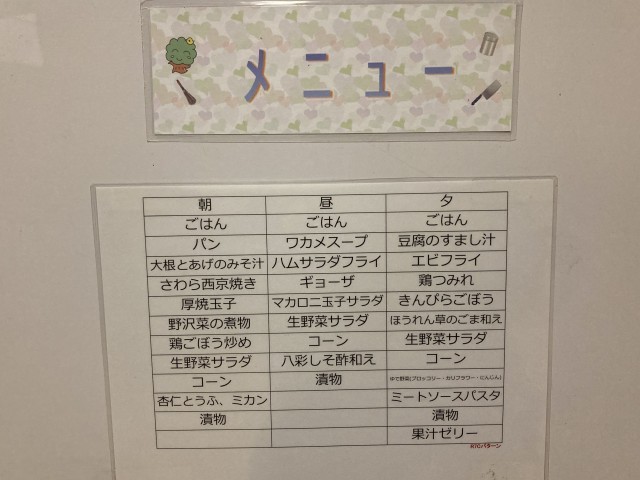 メニュー
朝 昼 夕
ごはん ごはん ごはん
パン ワカメスープ 豆腐のすまし汁
大根とあげのみそ汁 ハムサラダフライ エビフライ
さわら西京焼き ギョーザ 鶏つみれ
厚焼玉子 マカロニ玉子サラダ きんぴらごぼう
野沢菜の煮物 生野菜サラダ ほうれん草のごま和え
鶏ごぼう炒め コーン 生野菜サラダ
生野菜サラダ 八彩しそ酢和え コーン
コーン 漬物 ゆで野菜(ブロッコリー・カリフラワー・にんじん)
杏仁とうふ、ミカン ミートソースパスタ
漬物 漬物
果汁ゼリー
RTCパターン